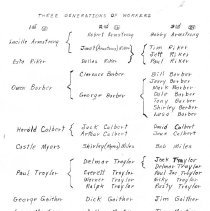 THREE GENERATIONS OF WORKERS
1st 2nd 3rd
Robert Armstrong Bobby Armstrong
Lucille Armstrong
Janet (Armstrong) Riker Tim Riker
Jeff Riker
Esta Riker Dallas Riker Paul Riker
Clarence Barber Bill Barber
Jerry Barber
Owen Barber Mark Barber
George Barber Dale Barber
Tony Barber
Shirley Barber
Harold Colbert Jack Colbert David Colbert
Arthur Colbert Colbert
Castle Myers Shirley Miles Bob Miles
Delmar Traylor Jack Traylor
Delmar Traylor
Paul Traylor Everett Traylor Paul Traylor
Traylor Ricky Traylor
Ralph Traylor Rusty Traylor
George Gaither Dick Gaither Jim Gaither